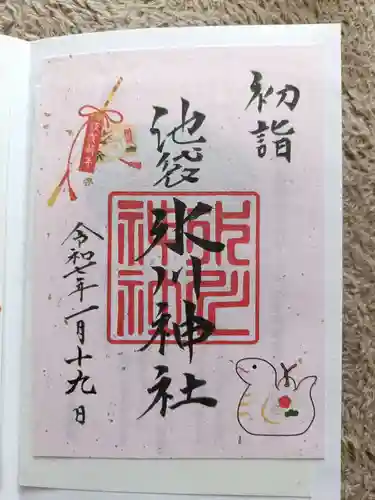 初詣
池袋
氷川神社
氷川
神社
令和七年一月十九日
謹賀新年